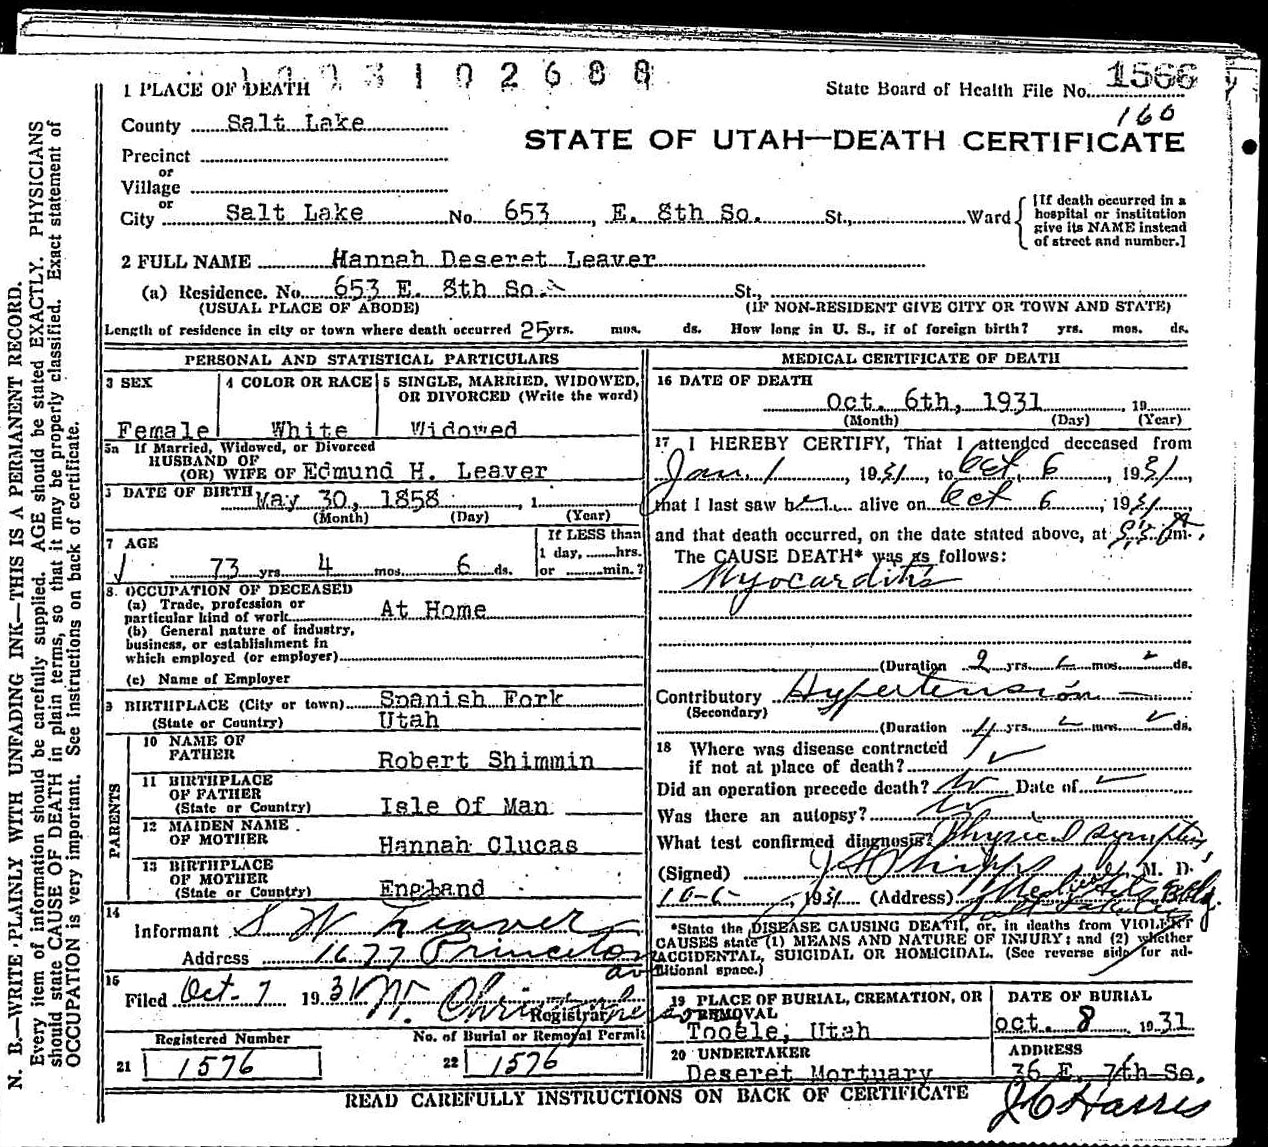 1003102688
1 PLACE OF DEATH
State Board of Health File No. 1566
160
County Salt Lake
STATE OF UTAH—DEATH CERTIFICATE
Precinct
or
Village
or
City Salt Lake No. 653, E. 8th So. St., Ward
[If death occurred in a hospital or institution give its NAME instead of street and number.]
2 FULL NAME Hannah Deseret Leaver
(a) Residence. No. 653 E. 8th So. St.,
(USUAL PLACE OF ABODE) (IF NON-RESIDENT GIVE CITY OR TOWN AND STATE)
Length of residence in city or town where death occurred 25 yrs. mos. ds. How long in U. S., if of foreign birth? yrs. mos. ds.
PERSONAL AND STATISTICAL PARTICULARS
3 SEX
Female
4 COLOR OR RACE
White
5 SINGLE, MARRIED, WIDOWED, OR DIVORCED (Write the word)
Widowed
5a If Married, Widowed, or Divorced
HUSBAND OF
(OR) WIFE OF Edmund H. Leaver
DATE OF BIRTH May 30, 1858, 1
(Month) (Day) (Year)
7 AGE
73 yrs. 4 mos. 6 ds.
If LESS than
1 day, hrs.
or min.?
8. OCCUPATION OF DECEASED
(a) Trade, profession or
particular kind of work At Home
(b) General nature of industry,
business, or establishment in
which employed (or employer)
(c) Name of Employer
9 BIRTHPLACE (City or town) Spanish Fork
(State or Country) Utah
PARENTS
10 NAME OF
FATHER Robert Shimmin
11 BIRTHPLACE
OF FATHER
(State or Country) Isle Of Man
12 MAIDEN NAME
OF MOTHER Hannah Clucas
13 BIRTHPLACE
OF MOTHER
(State or Country) England
14
Informant S W Leaver
Address 1677 Princeton
av
15
Filed Oct. 7 1931 W. Christophersen
Registrar
Registered Number
21 1576
No. of Burial or Removal Permit
22 1576
MEDICAL CERTIFICATE OF DEATH
16 DATE OF DEATH
Oct. 6th, 1931, 19
(Month) (Day) (Year)
17 I HEREBY CERTIFY, That I attended deceased from
Jan. 1, 1931, to Oct 6, 1931,
that I last saw her alive on Oct 6, 1931,
and that death occurred, on the date stated above, at m.
The CAUSE DEATH* was as follows:
Myocarditis
(Duration 2 yrs. mos. ds.
Contributory Hypertension
(Secondary)
(Duration 4 yrs. mos. ds.
18 Where was disease contracted
if not at place of death?
Did an operation precede death? Date of
Was there an autopsy?
What test confirmed diagnosis? Physical symptoms
(Signed) M. D.
10-6-, 1931 (Address) Bldg.
Salt Lake City
*State the DISEASE CAUSING DEATH, or, in deaths from VIOLENT
CAUSES state (1) MEANS AND NATURE OF INJURY; and (2) whether
ACCIDENTAL, SUICIDAL OR HOMICIDAL. (See reverse side for ad-
ditional space.)
19 PLACE OF BURIAL, CREMATION, OR
REMOVAL
Tooele, Utah
DATE OF BURIAL
oct. 8 1931
20 UNDERTAKER
Deseret Mortuary
ADDRESS
36 E. 7th So.
READ CAREFULLY INSTRUCTIONS ON BACK OF CERTIFICATE
J C Harris
N. B.—WRITE PLAINLY WITH UNFADING INK—THIS IS A PERMANENT RECORD.
Every item of information should be carefully supplied. AGE should be stated EXACTLY. PHYSICIANS
should state CAUSE OF DEATH in plain terms, so that it may be properly classified. Exact statement of
OCCUPATION is very important. See instructions on back of certificate.